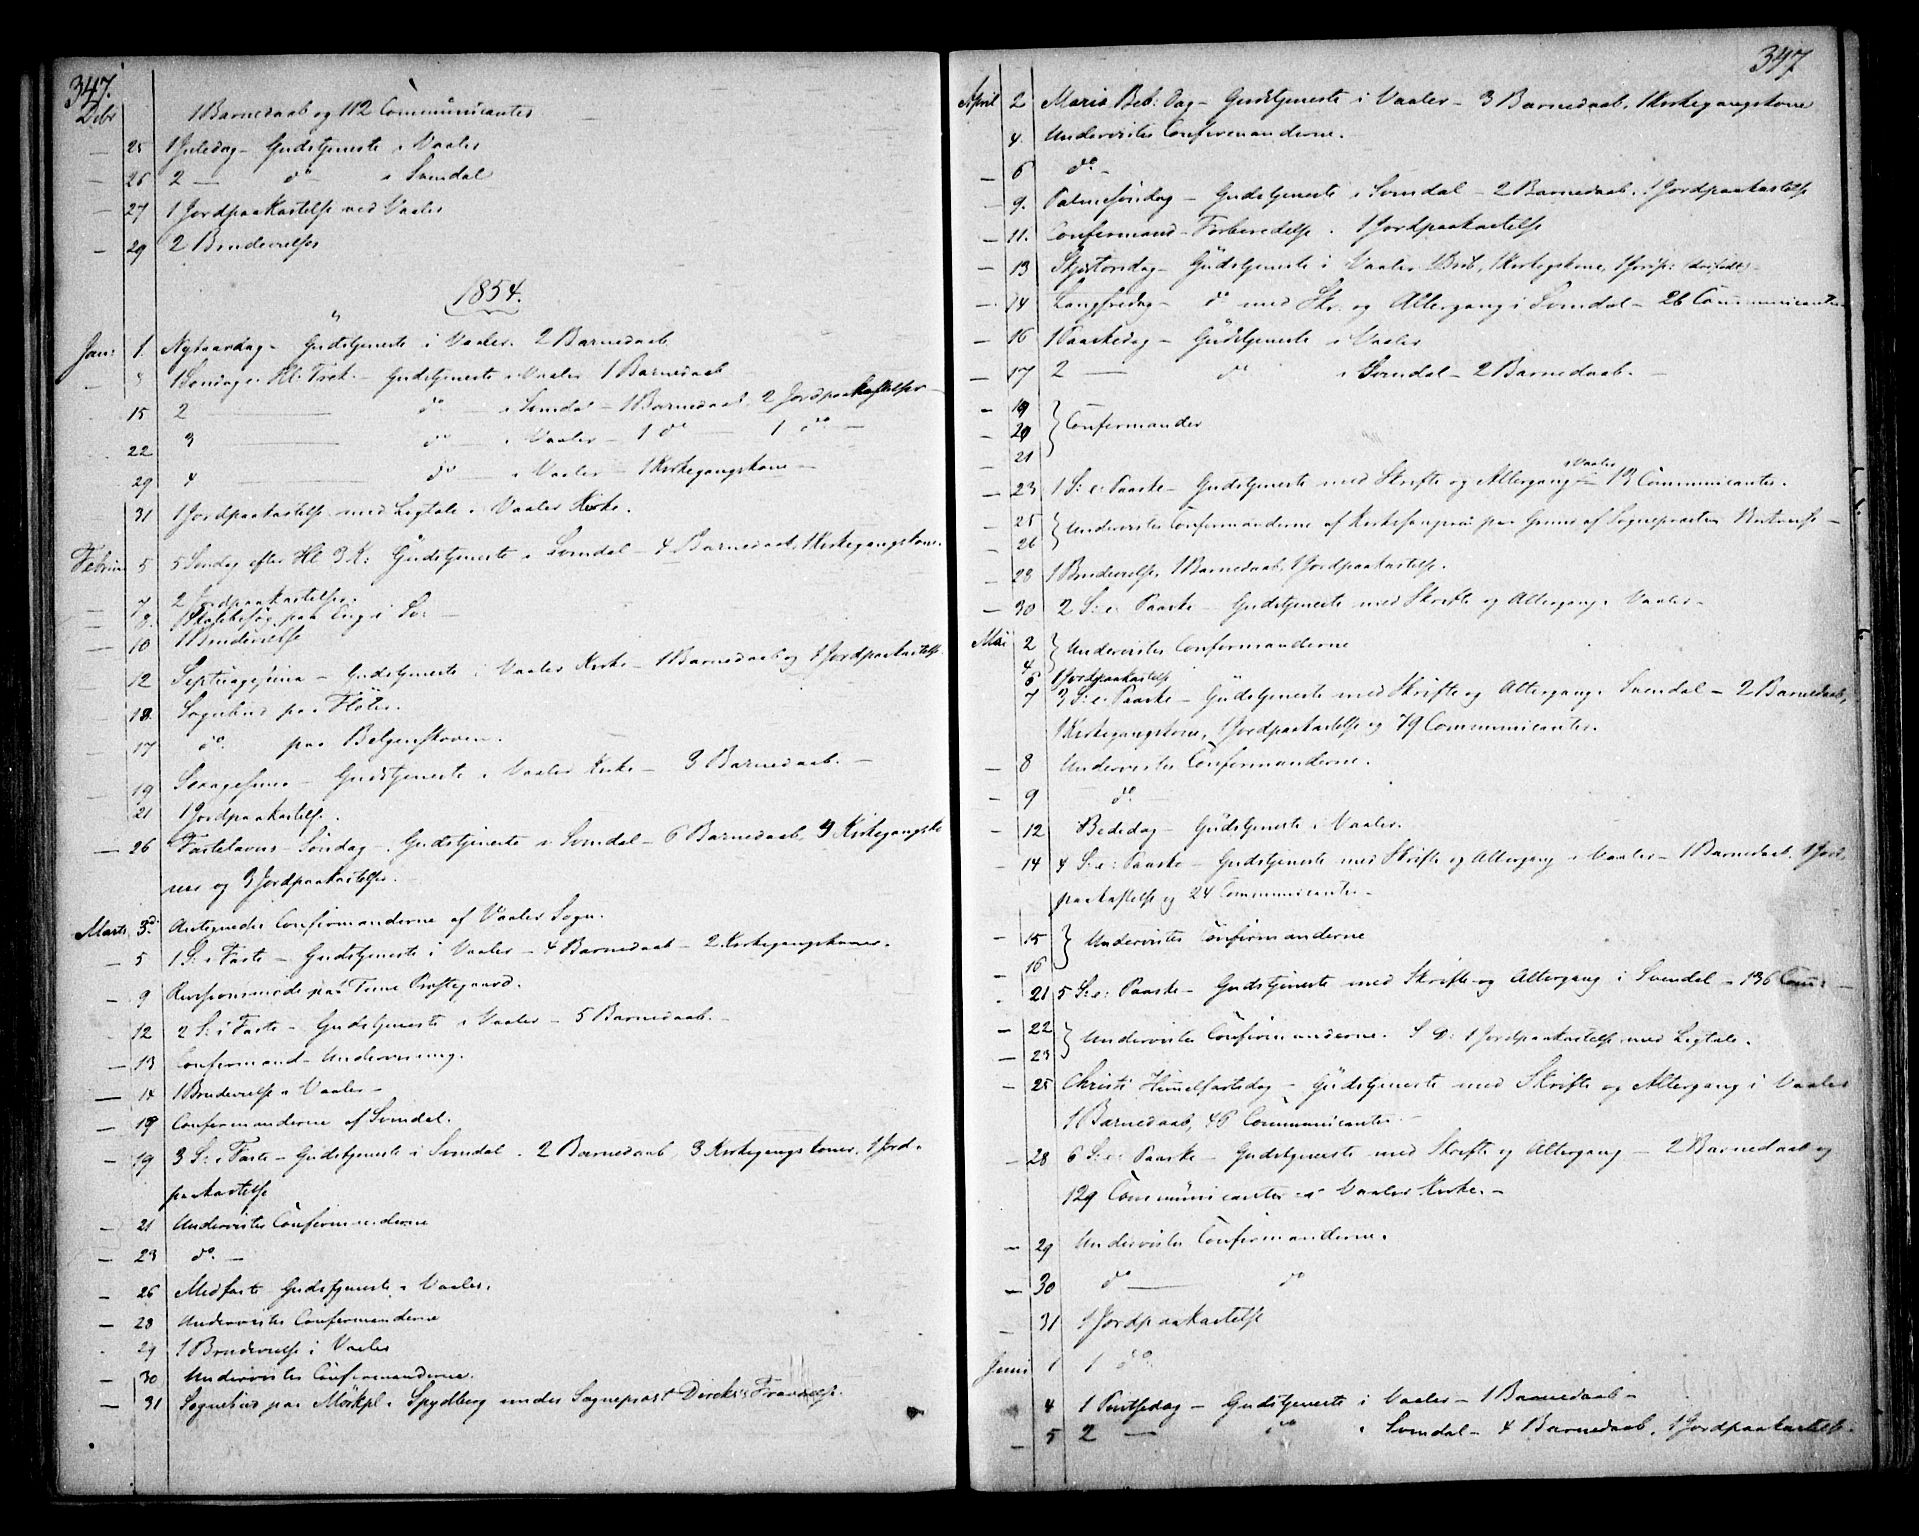 347.
Decbr 1 Barnedaab og 112 Communicanter
— 25 1 Juledag – Gudstjeneste i Vaaler
— 26 2 — do i Svindal
— 27 1 Jordpaakastelse ved Vaaler
— 29 2 Brudevielser
1854.
Jan: 1. Nytaarsdag – Gudstjeneste i Vaaler. 2 Barnedaab
1 Søndag e. Hl. Trek. – Gudstjeneste i Vaaler 1 Barnedaab
15 2 — do — i Svindal – 1 Barnedaab, 2 Jordpaakastelser –
22 3 — do — i Vaaler – 1 do — 1 do —
29 4 — do — i Vaaler – 1 Kirkegangskone –
31 1 Jordpaakastelse med Ligtale i Vaaler Kirke.
Februar 5 5 Søndag efter Hl 3 K: Gudstjeneste i Svindal – 4 Barnedaab, 1 Kirkegangskone
7 2 Jordpaakastelser.
8. paa Eng i Sv: —
— 10 1 Brudevielse
— 12 Septuagesima – Gudstjeneste i Vaaler Kirke – 1 Barnedaab og 1 Jordpaakastelse
— 13. Sognebud paa Fløter.
— 17 do. paa Belgenskoven.
— 19 Sexagesima – Gudstjeneste i Vaaler Kirke – 3 Barnedaab. —
21 1 Jordpaakastelse.
— 26 Fastelavns-Søndag – Gudstjeneste i Svindal – 6 Barnedaab, 3 Kirkegangsko
ner og 3 Jordpaakastelser. —
Marts 3d. Antegnedes Confirmanderne af Vaaler Sogn.
— 5 1 S: i Faste – Gudstjeneste i Vaaler – 4 Barnedaab – 2 Kirkegangskoner.
— 9 paa Præstegaard.
— 12 2 S: i Faste – Gudstjeneste i Vaaler – 5 Barnedaab. —
— 13 Confirmand-Undervisning.
— 14 1 Brudevielse i Vaaler –
— Confirmanderne af Svindal.
— 19 3 S: i Faste – Gudstjeneste i Svindal – 2 Barnedaab, 3 Kirkegangskoner, 1 Jord-
paakastelse
— 21 Undervistes Confirmanderne
— 23 do. —
— 26 Midfaste Gudstjeneste i Vaaler.
— 28 Undervistes Confirmanderne
29 1 Brudevielse i Vaaler
— 30 Undervistes Confirmanderne.
— 31 Sognebud paa i Spydberg under Sogneprest Fraværelse.
347
April 2 Mariæ Beb: Dag – Gudstjeneste i Vaaler – 3 Barnedaab, 1 Kirkegangskone
4. Undervistes Confirmanderne.
— 6 do. –
— 9. Palmesøndag – Gudstjeneste i Svindal – 2 Barnedaab, 1 Jordpaakastelse
— 11. Confirmand-Forberedelse. 1 Jordpaakastelse
— 13 Skjærtorsdag – Gudstjeneste i Vaaler
— 14 Langfredag – do med Skr. og Altergang i Svindal – 26 Communicanter
— 16 1 Paaskedag – Gudstjeneste i Vaaler
— 17 2 — do i Svindal – 2 Barnedaab. —
— 19
— 20 Confirmander
— 21
— 23 1 S: e: Paaske – Gudstjeneste med Skrifte og Altergang i Vaaler – 13 Communicanter.
— 25 Undervistes Confirmanderne af Kirkesangeren paa Grund af Sogneprestens
— 26
— 28 1 Brudevielse, 1 Barnedaab, 1 Jordpaakastelse.
— 30 2 S: e: Paaske – Gudstjeneste med Skrifte og Altergang i Vaaler –
Mai 2 Undervistes Confirmanderne
4
6 1 Jordpaakastelse
7 3 S: e: Paaske – Gudstjeneste med Skrifte og Altergang i Svindal – 2 Barnedaab,
1 Kirkegangskone, 1 Jordpaakastelse og 79 Communicanter.
— 8 Undervistes Confirmanderne.
— 9 do. —
— 12 Bededag – Gudstjeneste i Vaaler.
— 14 4 S: e: Paaske – Gudstjeneste med Skrifte og Altergang i Vaaler – 1 Barnedaab, 1 Jord-
paakastelse og 24 Communicanter. –
— 15 Undervistes Confirmanderne
— 16
21 5 S: e: Paaske – Gudstjeneste med Skrifte og Altergang i Svindal – 136 Com: —
— 22 Undervistes Confirmanderne. S. D: 1 Jordpaakastelse med Ligtale.
— 23
— 25 Christi Himmelfartsdag – Gudstjeneste med Skrifte og Altergang i Vaaler
1 Barnedaab, 46 Communicanter —
— 28 6 S: e: Paaske – Gudstjeneste med Skrifte og Altergang – 2 Barnedaab og
129 Communicanter i Vaaler Kirke. –
— 29 Undervistes Confirmanderne.
— 30 do — do
— 31 1 Jordpaakastelse
Juni 1 1 do.
4 1 Pintsedag – Gudstjeneste i Vaaler – 1 Barnedaab –
— 5 2 — do i Svindal – 4 Barnedaab, 1 Jordpaakastelse.